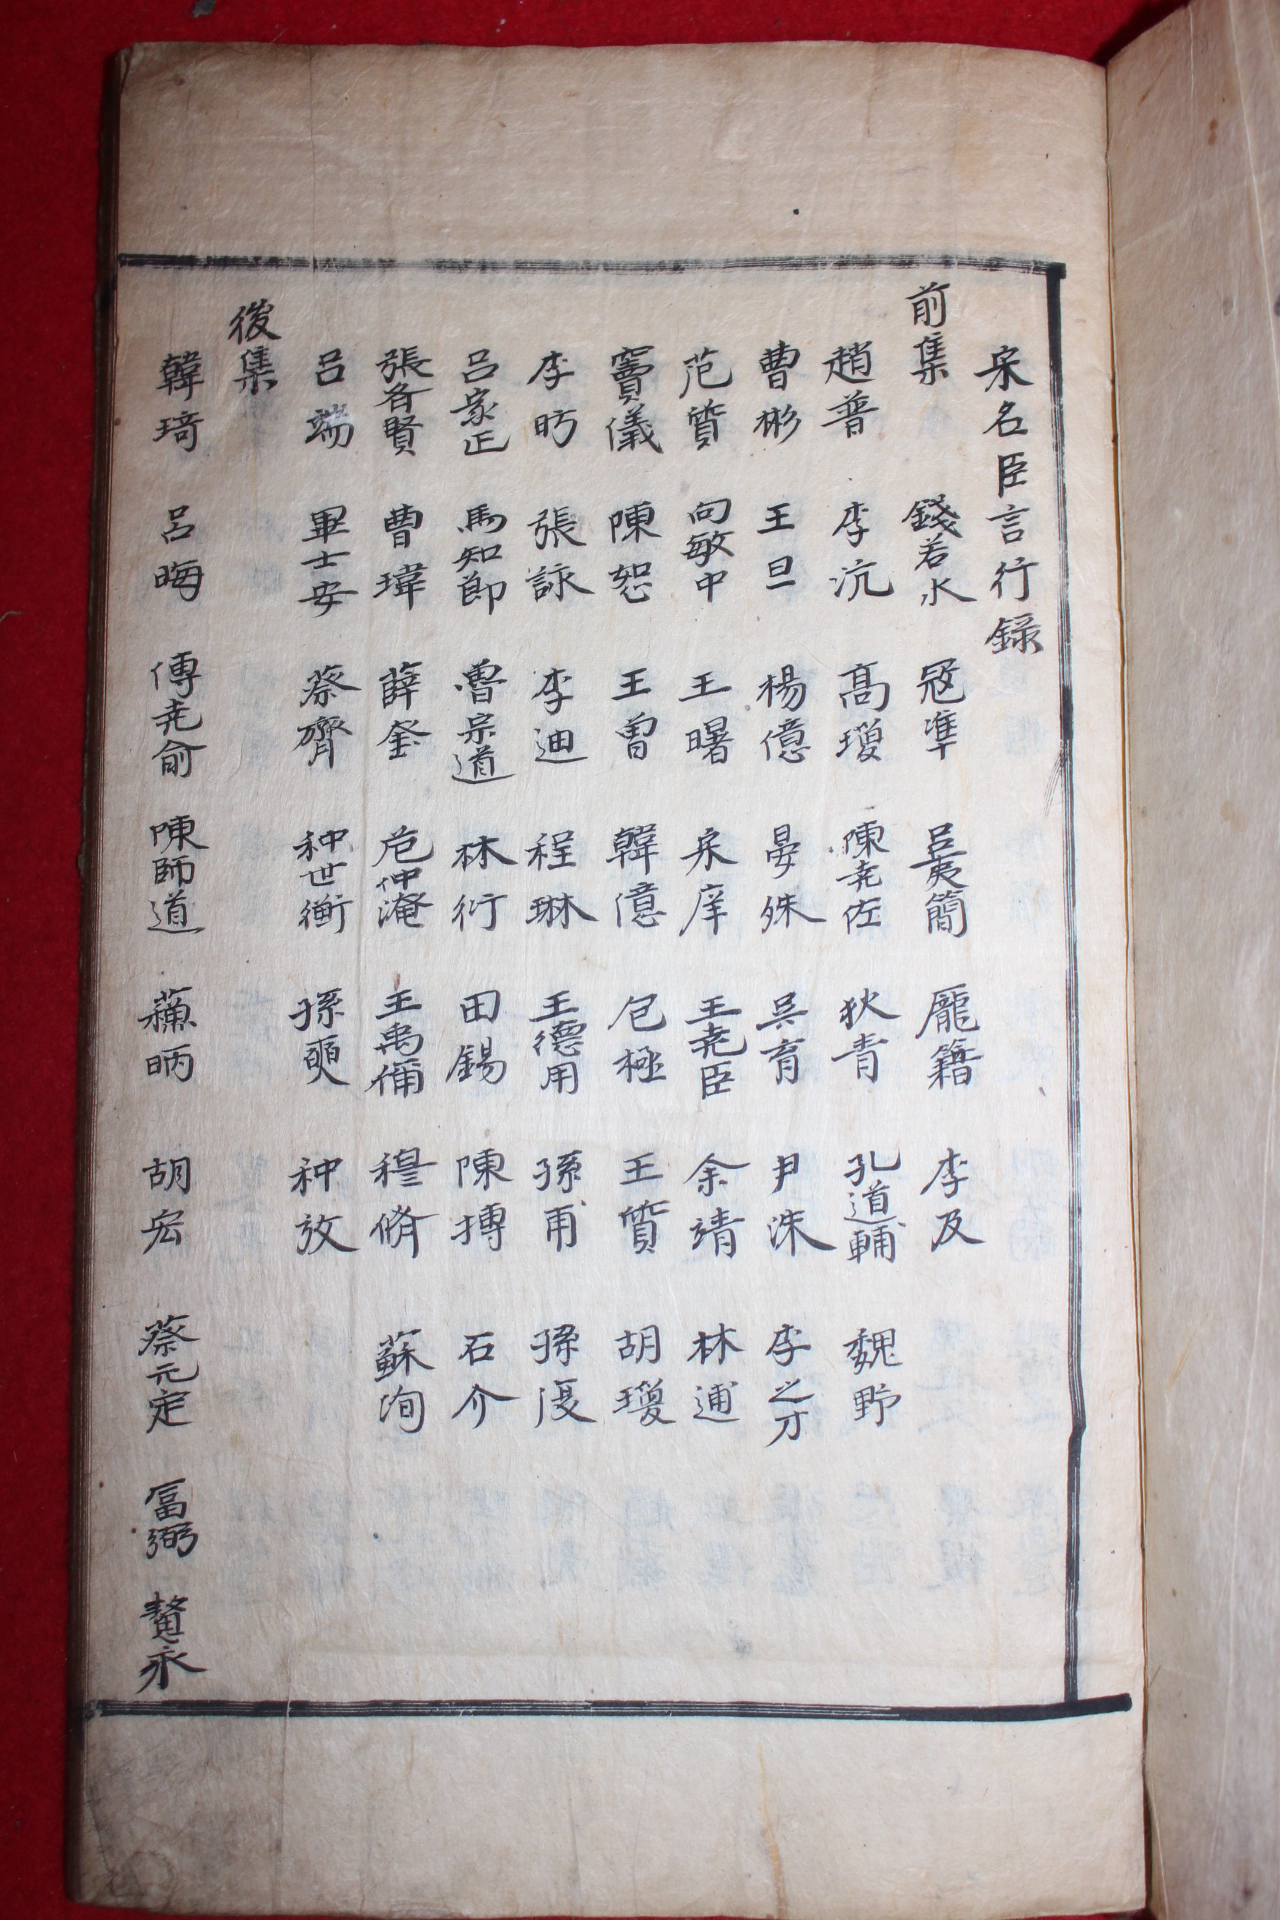 宋名臣言行錄
前集 錢若水 冦準 呂夷簡 龐籍 李及
趙普 李沆 高瓊 陳尭佐 狄青 孔道輔 魏野
曹彬 王旦 楊億 晏殊 吳育 尹洙 李之才
范質 向敏中 王曙 宋庠 王尭臣 余靖 林逋
竇儀 陳恕 王曾 韓億 包極 王質 胡瓊
李昉 張詠 李迪 程琳 王德用 孫甫 孫復
呂蒙正 馬知節 魯宗道 林衍 田錫 陳摶 石介
張齊賢 曹瑋 薛奎 范仲淹 王禹偁 穆脩 蘇洵
呂端 畢士安 蔡齊 种世衡 孫奭 种放
後集
韓琦 呂晦 傅尭俞 陳師道 蘇昞 胡宏 蔡元定 冨弼 龔永